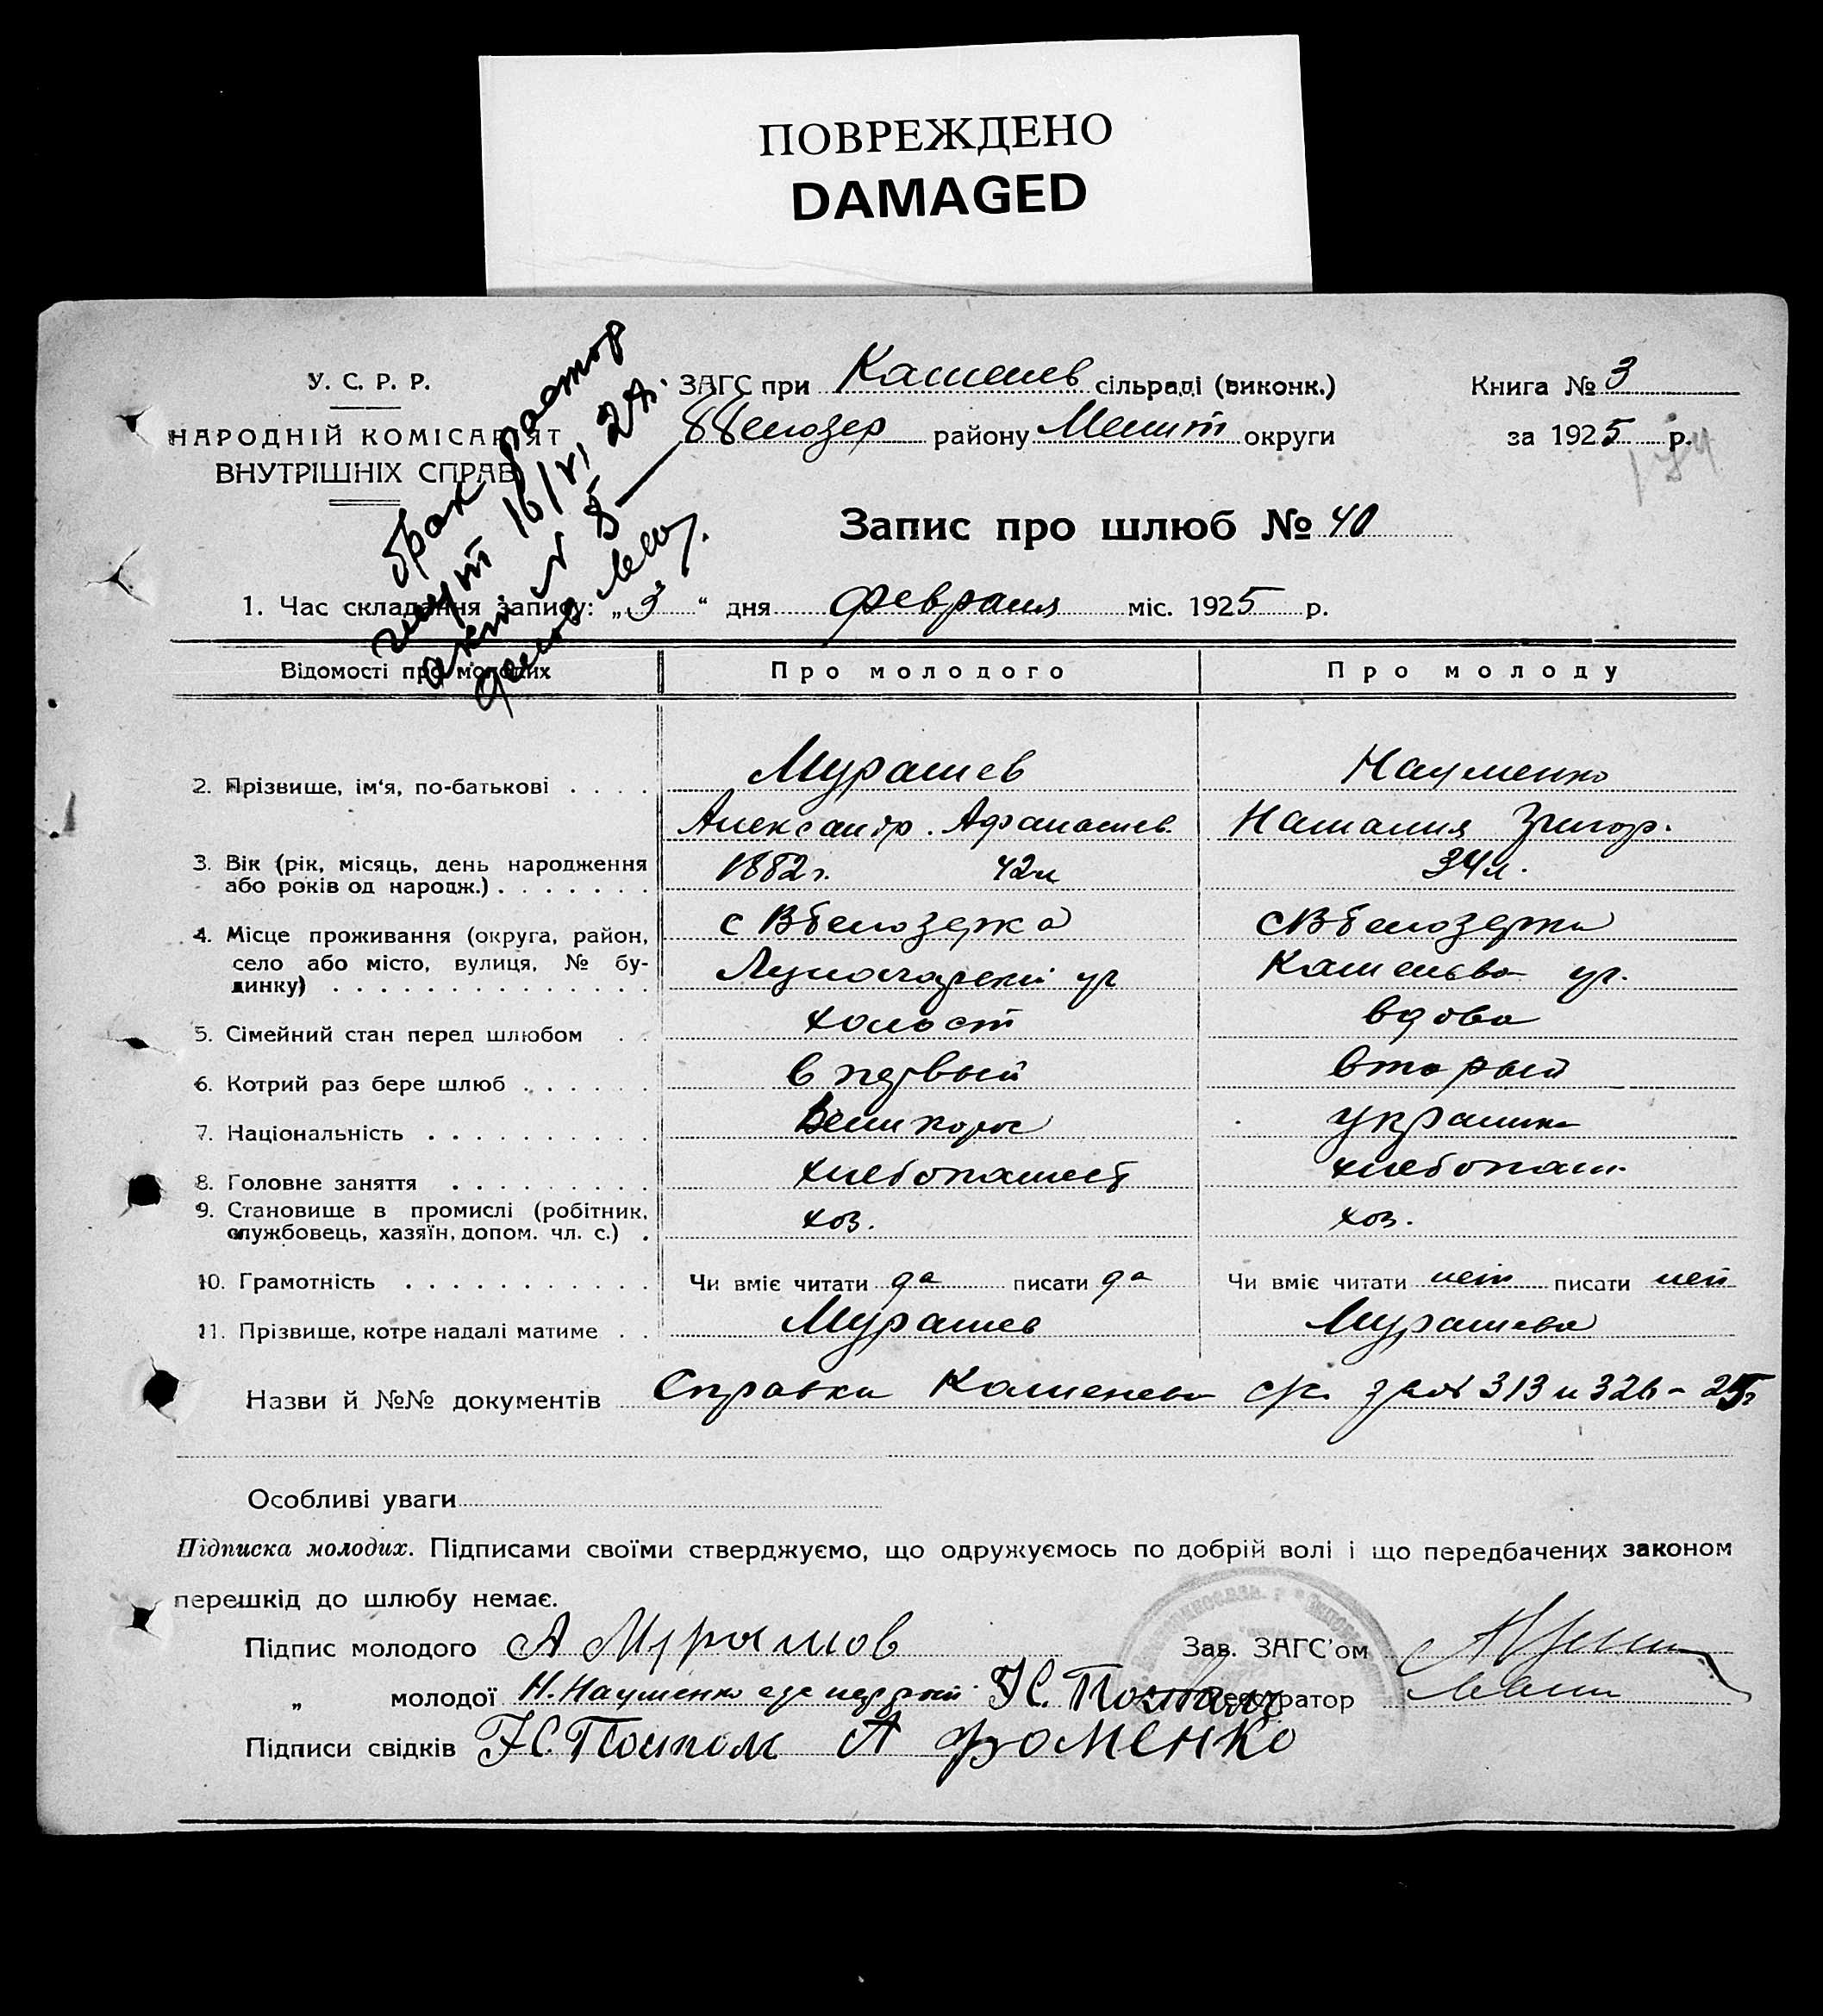 ПОВРЕЖДЕНО
DAMAGED
У. С. Р. Р.
НАРОДНІЙ КОМІСАРІЯТ
ВНУТРІШНІХ СПРАВ
брак растор
гнут 16/VI 27.
акт N 5
ЗАГС при Каменев сільраді (виконк.)
ВБелозер району Мелит округи
Книга № 3
за 1925 р.
184
Запис про шлюб № 40
1. Час складання запису: „3" дня февраля міс. 1925 р.
Відомості про молодих
Про молодого
Про молоду
2. Прізвище, ім'я, по-батькові
Мурашев
Науменко
Александр. Афанасьев.
Наталия Григор.
3. Вік (рік, місяць, день народження або років од народж.)
1882 г. 42 л
34 л.
4. Місце проживання (округа, район, село або місто, вулиця, № будинку)
с ВБелозерка
с ВБелозерка
Луначарский ур
Каменева ур.
5. Сімейний стан перед шлюбом
холост
вдова
6. Котрий раз бере шлюб
в первый
вторый
7. Національність
Великорос
украинка
8. Головне заняття
хлебопашест
хлебопаш.
9. Становище в промислі (робітник, службовець, хазяїн, допом. чл. с.)
хоз.
хоз.
10. Грамотність
Чи вміє читати да писати да
Чи вміє читати нет писати нет
11. Прізвище, котре надалі матиме
Мурашев
Мурашева
Назви й №№ документів Справки Каменева с/с за № 313 и 326 - 25 г
Особливі уваги
Підписка молодих. Підписами своїми стверджуємо, що одружуємось по добрій волі і що передбачених законом
перешкід до шлюбу немає.
Підпис молодого А Мурашов
Зав. ЗАГС'ом
„ молодої Н. Науменко
Реєстратор
Підписи свідків А Фоменко